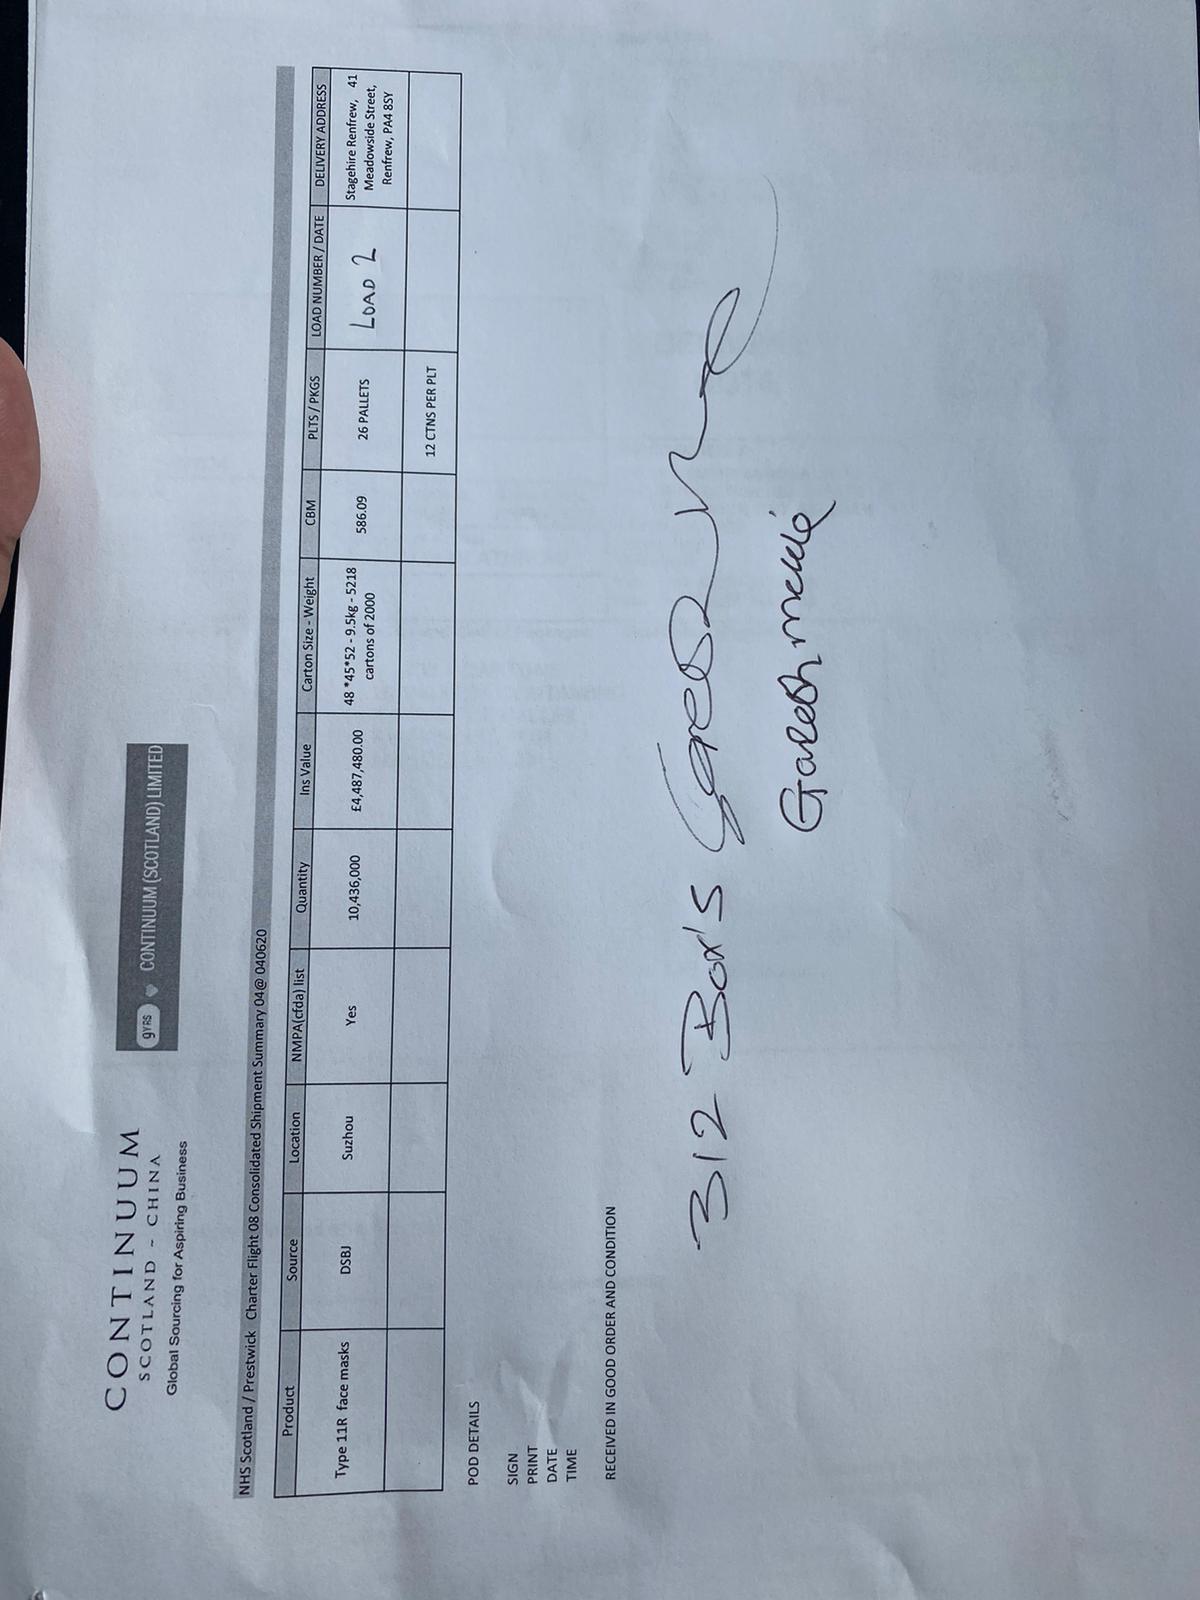 CONTINUUM
SCOTLAND ~ CHINA
Global Sourcing for Aspiring Business
9YRS CONTINUUM (SCOTLAND) LIMITED
NHS Scotland / Prestwick Charter Flight 08 Consolidated Shipment Summary 04@ 040620
Product Source Location NMPA(cfda) list Quantity Ins Value Carton Size - Weight CBM PLTS / PKGS LOAD NUMBER / DATE DELIVERY ADDRESS
Type 11R face masks DSBJ Suzhou Yes 10,436,000 £4,487,480.00 48 *45*52 - 9.5kg - 5218 cartons of 2000 586.09 26 PALLETS LOAD 2 Stagehire Renfrew, 41 Meadowside Street, Renfrew, PA4 8SY
12 CTNS PER PLT
POD DETAILS
SIGN
PRINT
DATE
TIME
RECEIVED IN GOOD ORDER AND CONDITION
312 Box's
Gareth